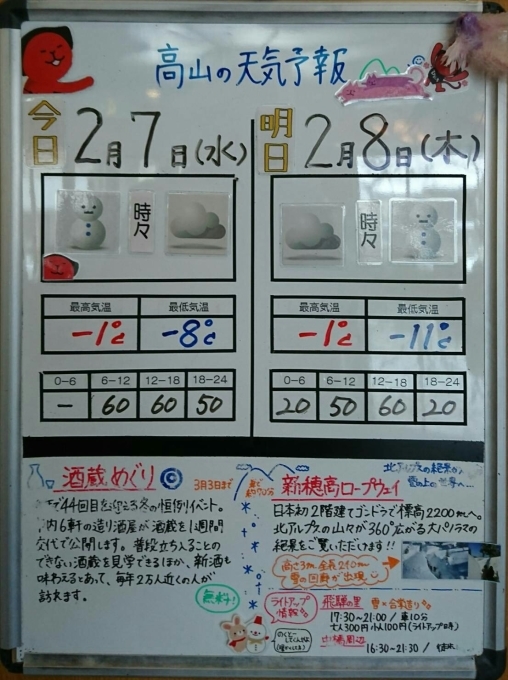 高山の天気予報
今日 2月7日(水)
時々
最高気温 最低気温
-1℃ -8℃
0-6 6-12 12-18 18-24
- 60 60 50
明日 2月8日(木)
時々
最高気温 最低気温
-1℃ -11℃
0-6 6-12 12-18 18-24
20 50 60 20
酒蔵めぐり
3月3日まで
44回目を
の恒例イベント。
内6軒の造り酒屋が酒蔵を1週間
交代で公開します。普段立ち入ることの
できない酒蔵を見学できるほか、新酒も
味わえるとあって、毎年2万人近くの人が
訪れます。
無料!
北アルプスの絶景が
雪の上の世界へ…
新穂高ロープウェイ
日本初2階建てゴンドラで標高2200mへ。
北アルプスの山々が360°広がる大パノラマの
絶景をご覧いただけます!!
高さ3m、全長210m
雪の回廊が出現
ライトアップ
情報
飛騨の里 雪と合掌造り
17:30~21:00 / 車10分
大人300円 小人100円(ライトアップ時)
16:30~21:30 /